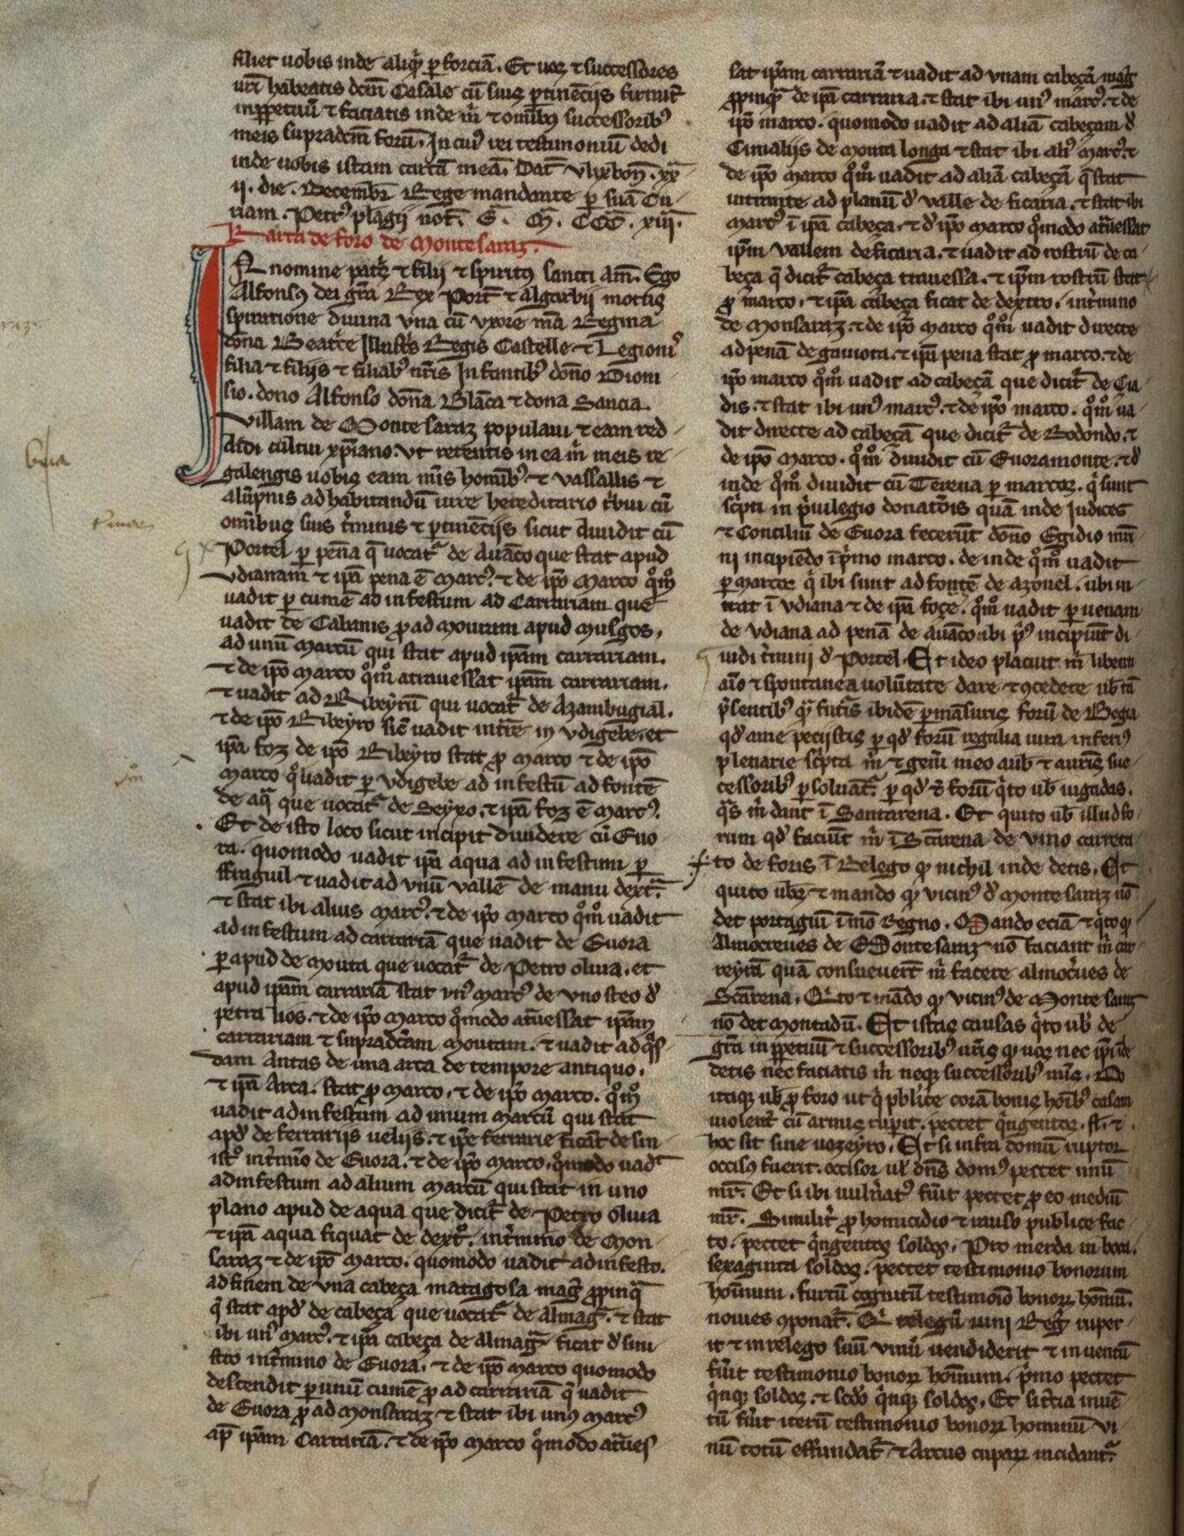 filiet uobis inde aliq̃ per forciã. Et uos ⁊ successores
ur̃i habeatis dcm̃ Casale cũ suis ꝑtinẽcijs firmit̃
inꝑpetuũ ⁊ faciatis inde m̃ ⁊ omĩbus successoribꝰ
meis supradcm̃ forũ. In cuiꝰ rei testimoniũ dedi
inde uobis istam cartã meã. Dat̃ vlixbon̄. xx
ij. die. Decembr̃ Rege mandante ꝑ suã Cu
riam. Petrꝰ plagij not̃. E. M. CCC. xiij.
Karta de foro de Monte saraz.
In nomine patris ⁊ filij ⁊ spiritus sancti am̃. Ego
Alfonsus dei gr̃a Rex Port̃ ⁊ algarbij motus
spiratione diuina vna cũ vxore mea Regina
dona Beatr̃e Illustris Regis Castelle ⁊ Legionis
filia ⁊ filijs ⁊ filiabꝰ nr̃is Infantibꝰ dõno Dioni
sio. dono Alfonso dõna Blãca ⁊ dona Sancia.
Villam de Monte saraz populaui ⁊ eam red
didi cultui xp̃iano. vt retentis in ea m̃ meis re
galengis uobis eam meis hominibꝰ ⁊ vassallis ⁊
alũpnis ad habitandũ iure hereditario tribui cũ
om̃ibus suis t̃minis ⁊ ꝑtinẽcijs sicut diuidit cũ
Portel ꝑ penã q̃ uocat̃ de Auãco que stat apud
vdianam ⁊ ip̃a pena ẽ Marcꝰ. ⁊ de ip̃o Marco qm̃o
uadit ꝑ cumẽ ad infestum ad Carrariam que
uadit de Cabanis ꝓ ad mourum apud mulgos.
ad unũ Marcũ qui stat apud ip̃am carrariam.
⁊ de ip̃o marco qm̃o atrauessat ip̃am carrariam.
⁊ uadit ad Ribeyrũ qui uocat̃ de Azambugial.
⁊ de ip̃o Ribeyro sic̃ uadit int̃re in vdigebe. et
ip̃a foz de ip̃o Ribeyro stat ꝓ marco ⁊ de ip̃o
marco q̃ uadit ꝑ vdigebe ad infestũ ad fontẽ
de aq̃ que uocat̃ de Seyxo. ⁊ ip̃a foz ẽ marcꝰ.
Et de isto loco sicut incipit diuidere cũ Euo
ra. quomodo uadit ip̃a aqua ad infestum ꝑ
ffrigiul ⁊ uadit ad vnũ vallẽ de manu dext̃a.
⁊ stat ibi alius marcꝰ. ⁊ de ip̃o marco qm̃o uadit
ad infestum ad carrariã que uadit de Euora
ꝑ apud de mouta que uocat̃ de Petro oliua. et
apud ip̃am carrariã stat vnꝰ marcꝰ de vno steo d̃
petra lios. ⁊ de ip̃o marco q̃modo at̃uessat ip̃am
carrariam ⁊ supradc̃am moutam. ⁊ uadit ad q̃s
dam Antas de una arca de tempore antiquo.
⁊ ip̃a Arca. stat ꝓ marco. ⁊ de ip̃o marco. qm̃o
uadit ad infestum ad unum marcũ qui stat
apd̃ de ferrarijs uelijs. ⁊ ip̃e ferrarie ficãt de sin
istꝰ in t̃mino de Euora. ⁊ de ip̃o marco. q̃modo uadit
ad infestum ad alium marcũ qui stat in uno
plano apud de aqua que dicit̃ de Petro oliua
⁊ ip̃a aqua fiquat de dext̃o. in t̃mino de Mon
saraz ⁊ de ip̃o marco. quomodo uadit ad infesto.
ad finem de vna cabeça matagosa mag̃ ꝓpinq̃
q̃ stat apd̃ de cabeça que uocat̃ de Almag̃. ⁊ stat
ibi unꝰ marcꝰ. ⁊ ip̃a cabeça de almag̃ ficat d̃ sini
stro in t̃mino de Euora. ⁊ de ip̃o marco quomodo
descendit ꝑ unum cumẽ ꝓ ad carrariã q̃ uadit
de Euora ꝓ ad Monsaraz ⁊ stat ibi unus marcꝰ
ap̃ ip̃am Carrariã. ⁊ de ip̃o marco q̃modo at̃ues
sat ip̃am carrariã ⁊ uadit ad vnam cabeçã mag̃
ꝓpinq̃ de ip̃a carraria. ⁊ stat ibi unꝰ marcꝰ. ⁊ de
ip̃o marco. quomodo uadit ad aliã cabeçam d̃
Cimalijs de mouta longa ⁊ stat ibi aliꝰ marcꝰ. ⁊
de ip̃o marco qm̃o uadit ad aliã cabeçã q̃ stat
intrante ad planũ d̃ valle de ficaria. ⁊ stat ibi
marcꝰ ĩ ip̃a cabeça. ⁊ d̃ ip̃o marco q̃modo at̃uessat
ip̃m vallem de ficaria. ⁊ uadit ad rostrũ de ca
beça q̃ dicit̃ cabeça trauessa. ⁊ ip̃m rostrũ stat
ꝓ marco. ⁊ ip̃a cabeça ficat de dextro. in t̃mino
de Monsaraz. ⁊ de ip̃o marco qm̃o uadit directe
ad penã de gauiota. ⁊ ip̃a pena stat ꝓ marco. ⁊ de
ip̃o marco qm̃o uadit ad cabeçã que dicit̃ de Cu
dis. ⁊ stat ibi unꝰ marcꝰ. ⁊ de ip̃o marco. qm̃o ua
dit directe ad cabeçã que dicit̃ de Redondo. ⁊
de ip̃o marco. qm̃o diuidit cũ Euoramonte. ⁊ d̃
inde qm̃o diuidit cũ Terena ꝑ marcos. q̃ sunt
sc̃pti in p̃uilegio donatõis quã inde Judices
⁊ Conciliũ de Euora fecerũt dõno Egidio mar̃
ni incipiẽdo ĩ p̃mo marco. de inde qm̃o uadit
ꝑ marcos q̃ ibi sunt ad fontẽ de azouel. ubi in
trat ĩ vdiana ⁊ de ip̃a foçe. qm̃o uadit ꝑ uenam
de vdiana ad penã de auãco ubi pꝰ incipiũt di
uidi t̃mini d̃ Portel. Et ideo placuit m̃ libenti
aĩo ⁊ spontanea volũtate dare ⁊ ꝯcedere ub̃ tã
p̃sentibꝰ q̃ futĩs ibidẽ ꝑmãsuris forũ de Bega
qd̃ a me pecijstis ꝑ qd̃ forũ regalia iura inferiꝰ
plenarie sc̃pta m̃ ⁊ geñi meo aub̃ ⁊ auris suc
cessoribꝰ ꝑsoluat̃. ꝑ qd̃ ⁊ forũ q̃to ub̃ iugadas.
q̃s m̃ dant ĩ Santarena. Et quito ub̃ illud fo
rum qd̃ faciũt m̃ ĩ Scãrena de vino carreta
to de foris ĩ Relego qͥ nichil inde detis. Et
quito ubꝫ ⁊ mando qͥ vicinꝰ d̃ Monte saraz nõ
det portagiũ ĩ meo Regno. Mando eciã ⁊ q̃to qͥ
Almocreues de Monte saraz nõ faciant m̃ car
reyrã quã consueuerũt m̃ facere almoc̃ues de
Scãrena. Q̃to ⁊ mãdo qͥ vicinꝰ de Monte saraz
nõ det montadũ. Et istas causas q̃to ub̃ de
gr̃a in ꝑpetuũ ⁊ successoribꝰ ur̃is qͥ uos nec ip̃i inde
detis nec faciatis m̃ neqꝫ successoribꝰ meis. Do
itaqꝫ ub̃ ꝓ foro ut q̃ pblice corã bonis hoĩbꝰ casam
uiolent̃ cũ armis ruperit. pectet q̃ngentos. sł. ⁊
hoc sit sine uozeyro. Et si infra domũ ruptor
occisus fuerit. occisor ul̃ dñs domꝰ pectet unũ
mr̃. Et si ibi uuln̄atꝰ fuerit pectet ꝓ eo mediũ
mr̃. Similit̃ ꝓ homicidio ⁊ rauso publice fac
to. pectet q̃ngentos soldos. Pro merda in boca.
sexaginta soldos. pectet testimonio bonorum
hominum. furtũ cognitũ testimõio bonoꝝ hom̃iũ.
nouies ꝯponat̃. Q̃ relegũ uini Reg̃ ruper
it ⁊ in relego suũ vinũ uendiderit ⁊ inuentũ
fuerit testimonio bonoꝝ hom̃inum. p̃mo pectet
q̃nqꝫ soldos. ⁊ sc̃do q̃nqꝫ soldos. Et si t̃cia inuẽ
tũ fuerit iterũ testimonio bonoꝝ hominũ vi
nũ totũ effundat̃ ⁊ Arcus cupaꝝ incidant̃.